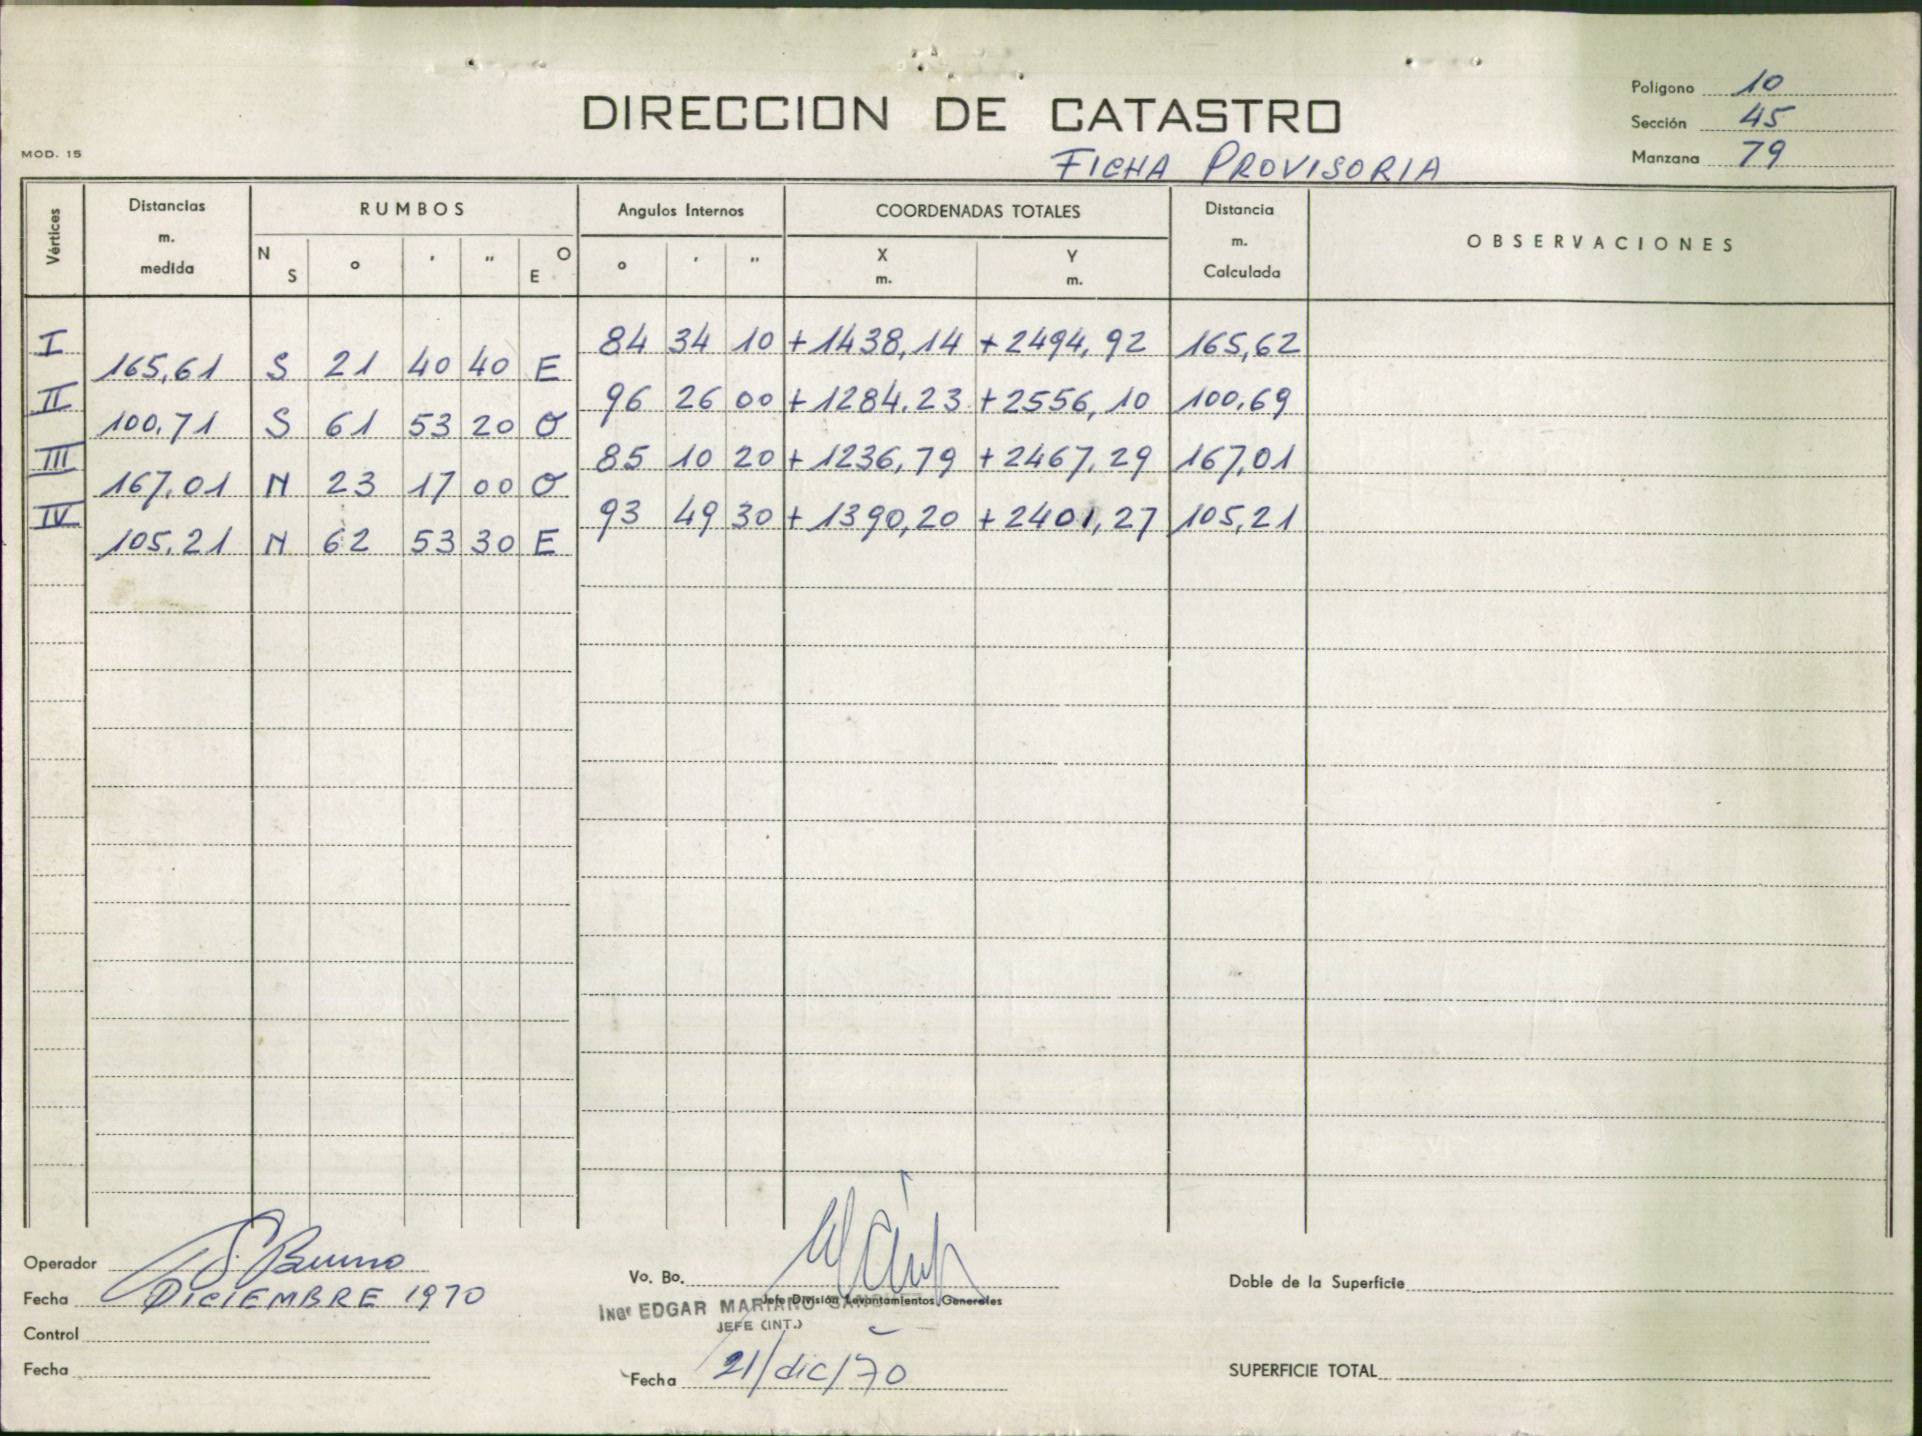 DIRECCION DE CATASTRO
MOD. 15
FICHA PROVISORIA
Polígono 10
Sección 45
Manzana 79
Vértices
Distancias m. medida
RUMBOS
N S ° ' " E O
Angulos Internos
° ' "
COORDENADAS TOTALES
X m. Y m.
Distancia m. Calculada
OBSERVACIONES
I 84 34 10 +1438,14 +2494,92 165,62
165,61 S 21 40 40 E
II 96 26 00 +1284,23 +2556,10 100,69
100,71 S 61 53 20 O
III 85 10 20 +1236,79 +2467,29 167,01
167,01 N 23 17 00 O
IV 93 49 30 +1390,20 +2401,27 105,21
105,21 N 62 53 30 E
Operador
Fecha DICIEMBRE 1970
Control
Fecha
Vo. Bo.
Jefe División Levantamientos Generales
Ingº EDGAR MARIANO
JEFE (INT.)
Fecha 21/dic/70
Doble de la Superficie
SUPERFICIE TOTAL